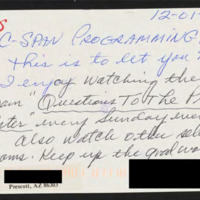 12-01-
C-SPAN PROGRAMMING
This is to let you
I enjoy watching the
"Questions To The P
ster" every Sunday eve
Also watch other sele
oms. Keep up the good wo
Prescott, AZ 86303